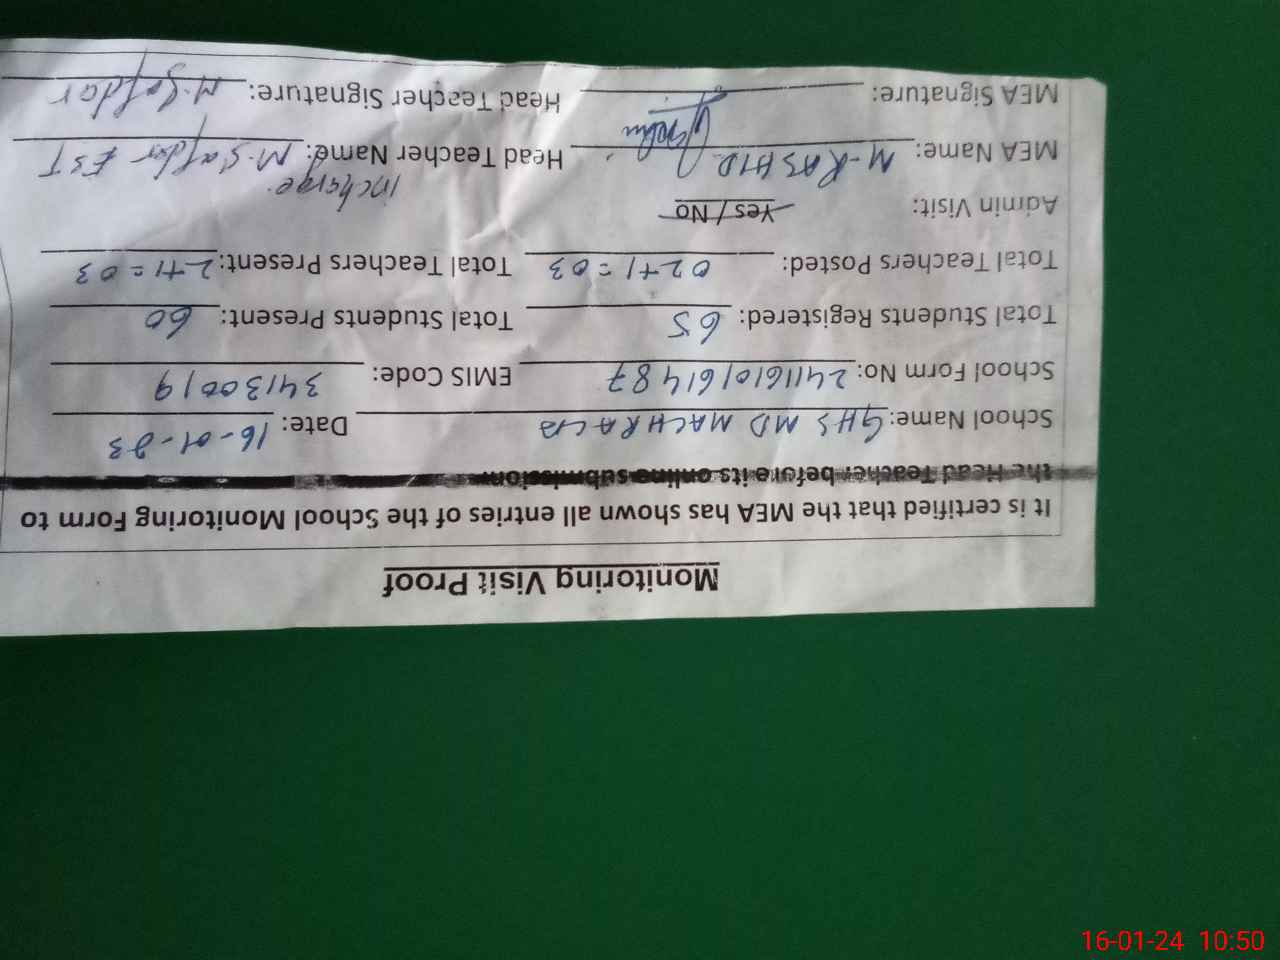 Monitoring Visit Proof
It is certified that the MEA has shown all entries of the School Monitoring Form to
the Head Teacher before its online submission.
School Name: GHS MD MACHRALA Date: 16-01-23
School Form No: 2411610161487 EMIS Code: 34130019
Total Students Registered: 65 Total Students Present: 60
Total Teachers Posted: 02+1=03 Total Teachers Present: 2+1=03
Admin Visit: Yes / No Incharge
MEA Name: M-RASHID Head Teacher Name: M.Safdar EST
MEA Signature: Head Teacher Signature: M.Safdar
16-01-24 10:50